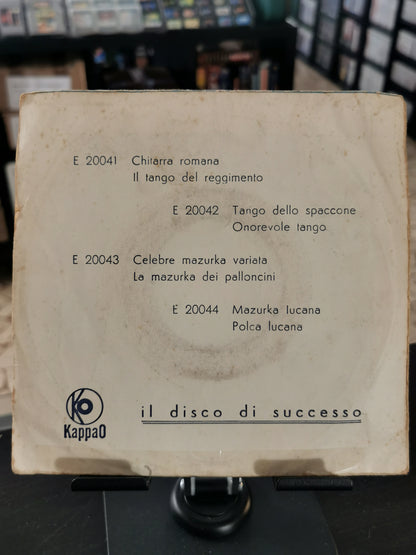 E 20041 Chitarra romana
Il tango del reggimento
E 20042 Tango dello spaccone
Onorevole tango
E 20043 Celebre mazurka variata
La mazurka dei palloncini
E 20044 Mazurka lucana
Polca lucana
KO
KappaO
il disco di successo